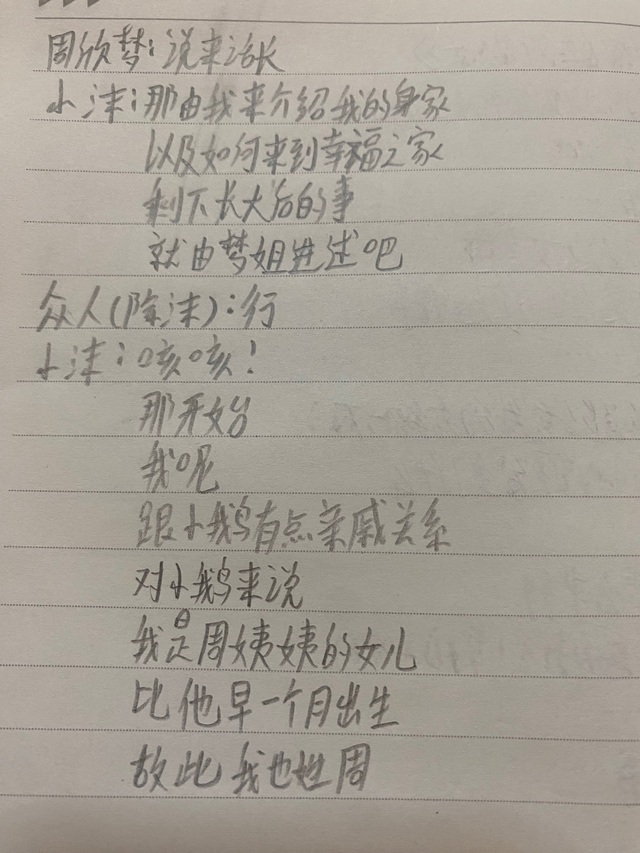 周欣梦:说来话长
小沫:那由我来介绍我的身家
以及如何来到幸福之家
剩下长大后的事
就由梦姐进述吧
众人(除沫):行
小沫:咳咳!
那开始
我呢
跟小鹅有点亲戚关系
对小鹅来说
我是周姨姨的女儿
比他早一个月出生
故此我也姓周